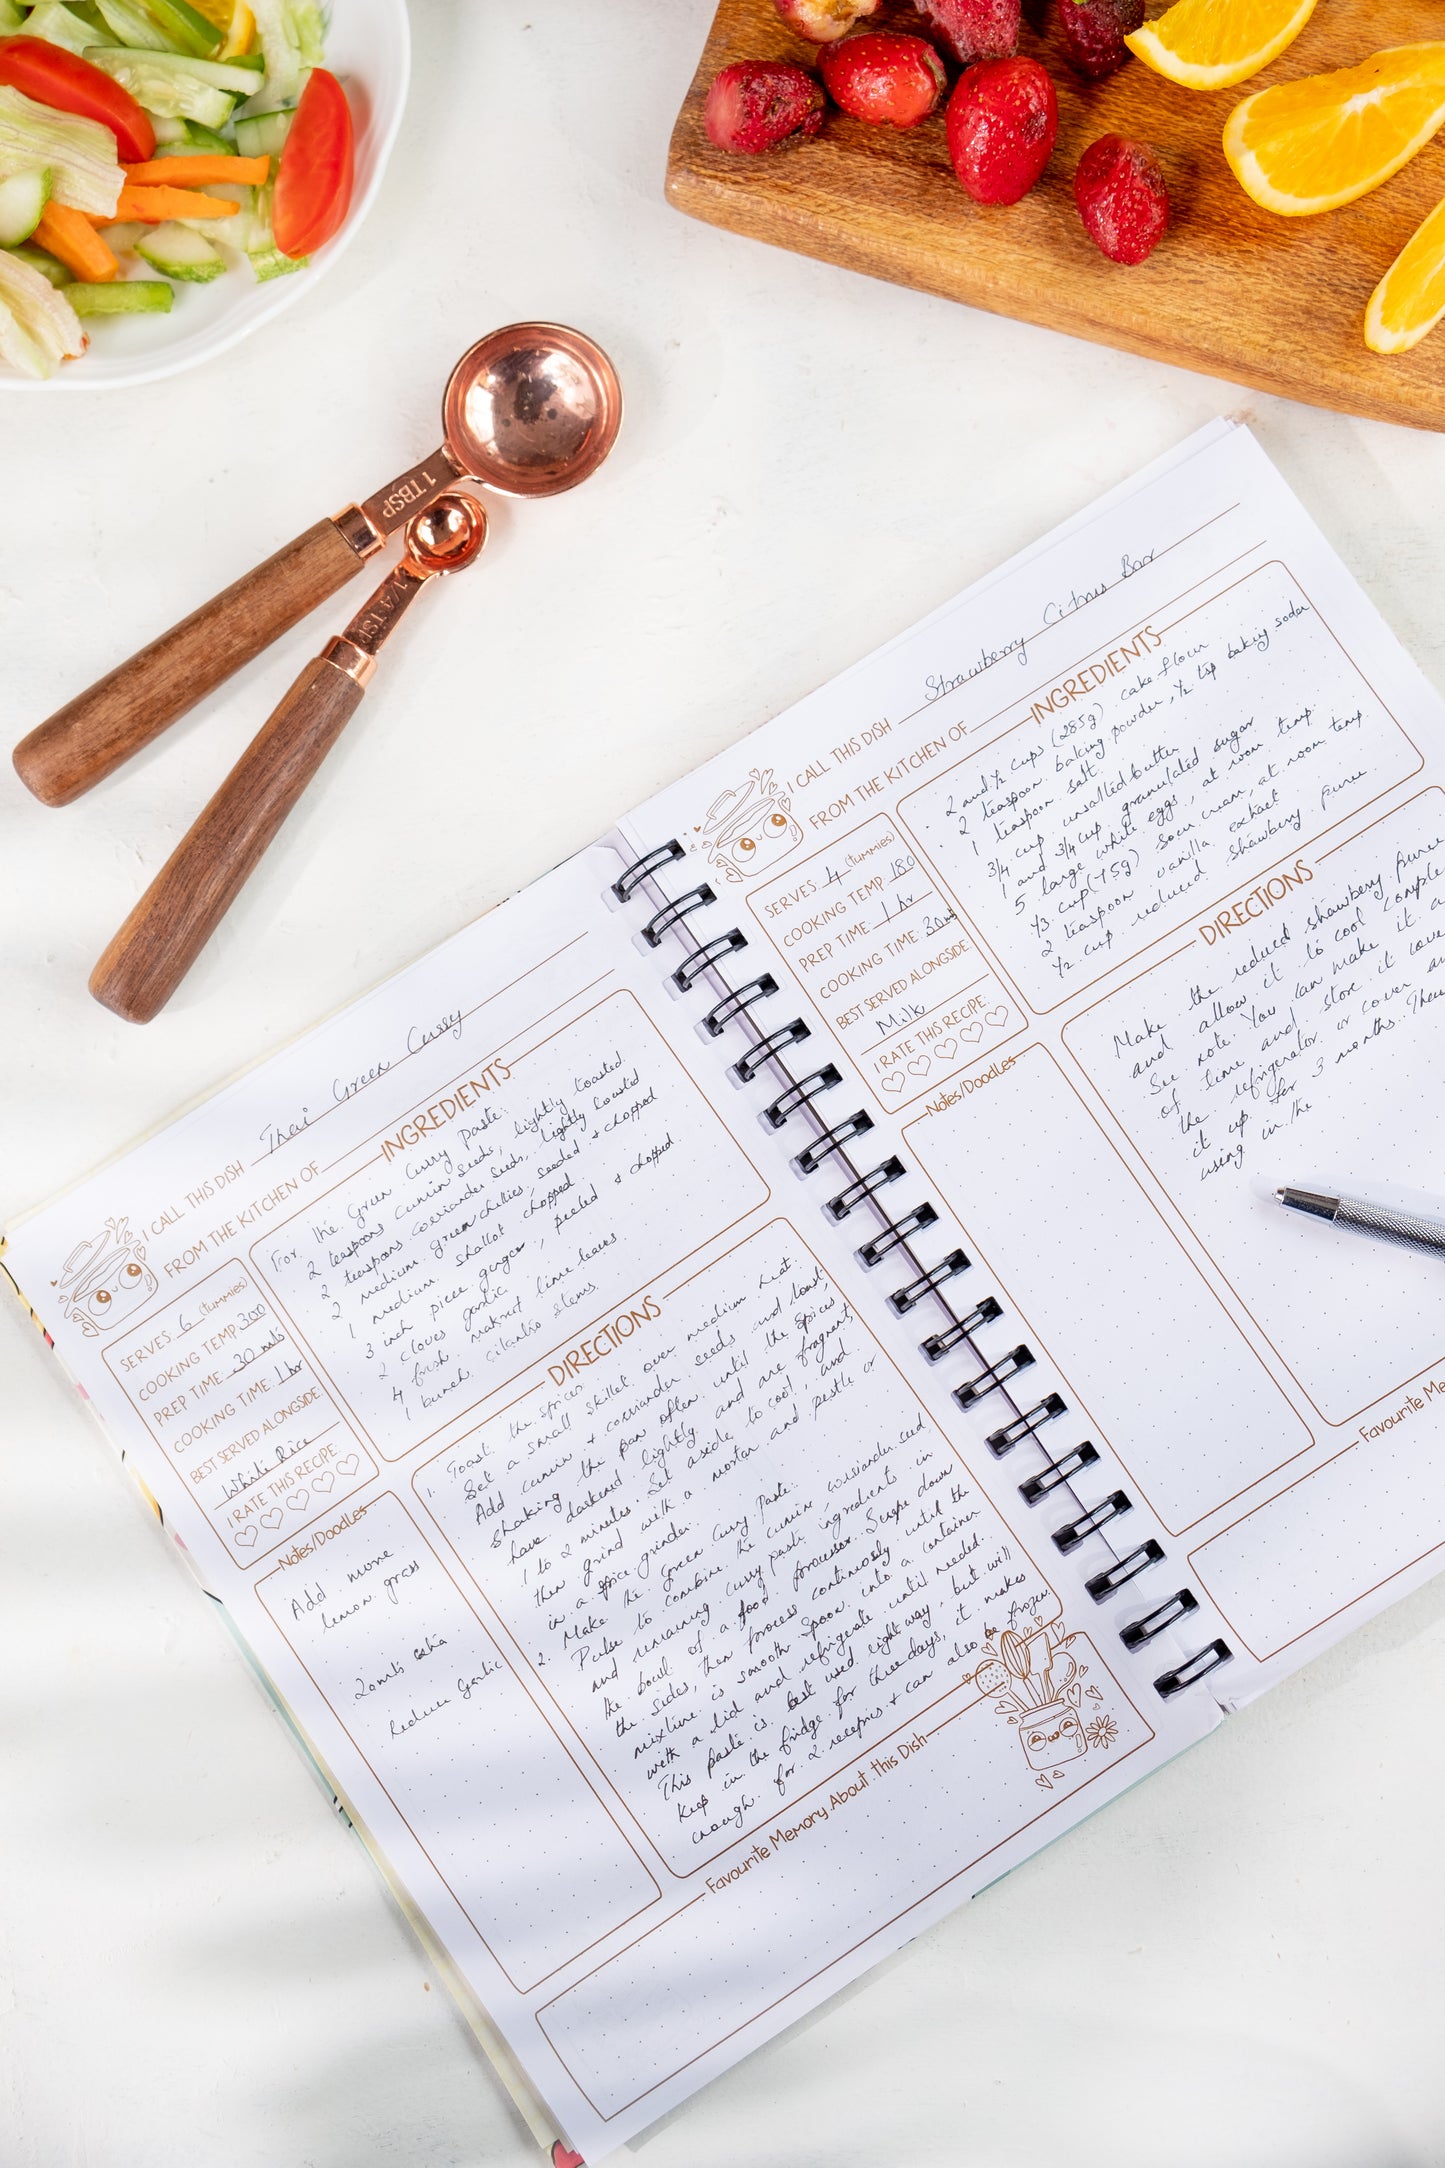 1 TBSP
1/4 TSP
I CALL THIS DISH Thai Green Curry
FROM THE KITCHEN OF
SERVES 6 (tummies)
COOKING TEMP 300
PREP TIME 30 mts
COOKING TIME: 1 hr
BEST SERVED ALONGSIDE:
White Rice
I RATE THIS RECIPE:
INGREDIENTS
For the Green Curry paste:
2 teaspoons cumin seeds, lightly toasted
2 teaspoons corriander seeds, lightly toasted
2 medium green chillies, seeded & chopped
1 medium shallot chopped
3 inch piece ginger, peeled & chopped
2 cloves garlic
4 fresh makrut lime leaves
1 bunch cilantro stems
Notes/Doodles
Add more
lemon grass
Reduce Garlic
DIRECTIONS
1. Toast the spices
Set a small skillet over medium
Add cumin & corriander seeds and toast,
shaking the pan often until the spices
have darkened lightly and are fragrant,
1 to 2 minutes. Set aside to cool, and
then grind with a mortar and pestle or
in a spice grinder.
2. Make the Green Curry Paste:
Pulse to combine the cumin, corriander seed
and remaining curry paste ingredients in
the bowl of a food processor. Scrape down
the sides, then process continuously until the
mixture is smooth. Spoon into a container
with a lid and refrigerate until needed.
This paste is best used right way, but will
keep in the fridge for three days, it makes
enough for 2 & can also be frozen.
Favourite Memory About this Dish
I CALL THIS DISH Strawberry Citrus Bar
FROM THE KITCHEN OF
SERVES 4 (tummies)
COOKING TEMP 180
PREP TIME: 1 hr
COOKING TIME: 30
BEST SERVED ALONGSIDE:
Milk
I RATE THIS RECIPE:
INGREDIENTS
2 and 1/2 cups (285g) cake flour
2 teaspoon baking powder, 1/2 tsp baking soda
1 teaspoon salt
3/4 cup unsalted butter
1 and 3/4 cup granulated sugar
5 large white eggs, at room temp.
1/3 cup (75g) sour cream, at room temp
2 teaspoon vanilla extract
1/2 cup reduced strawberry puree
Notes/Doodles
DIRECTIONS
Make the reduced strawberry puree
and allow it to cool
See note. You can make it
of time and store it
the refrigerator or cover
it up for 3 months.
using in the
Favourite